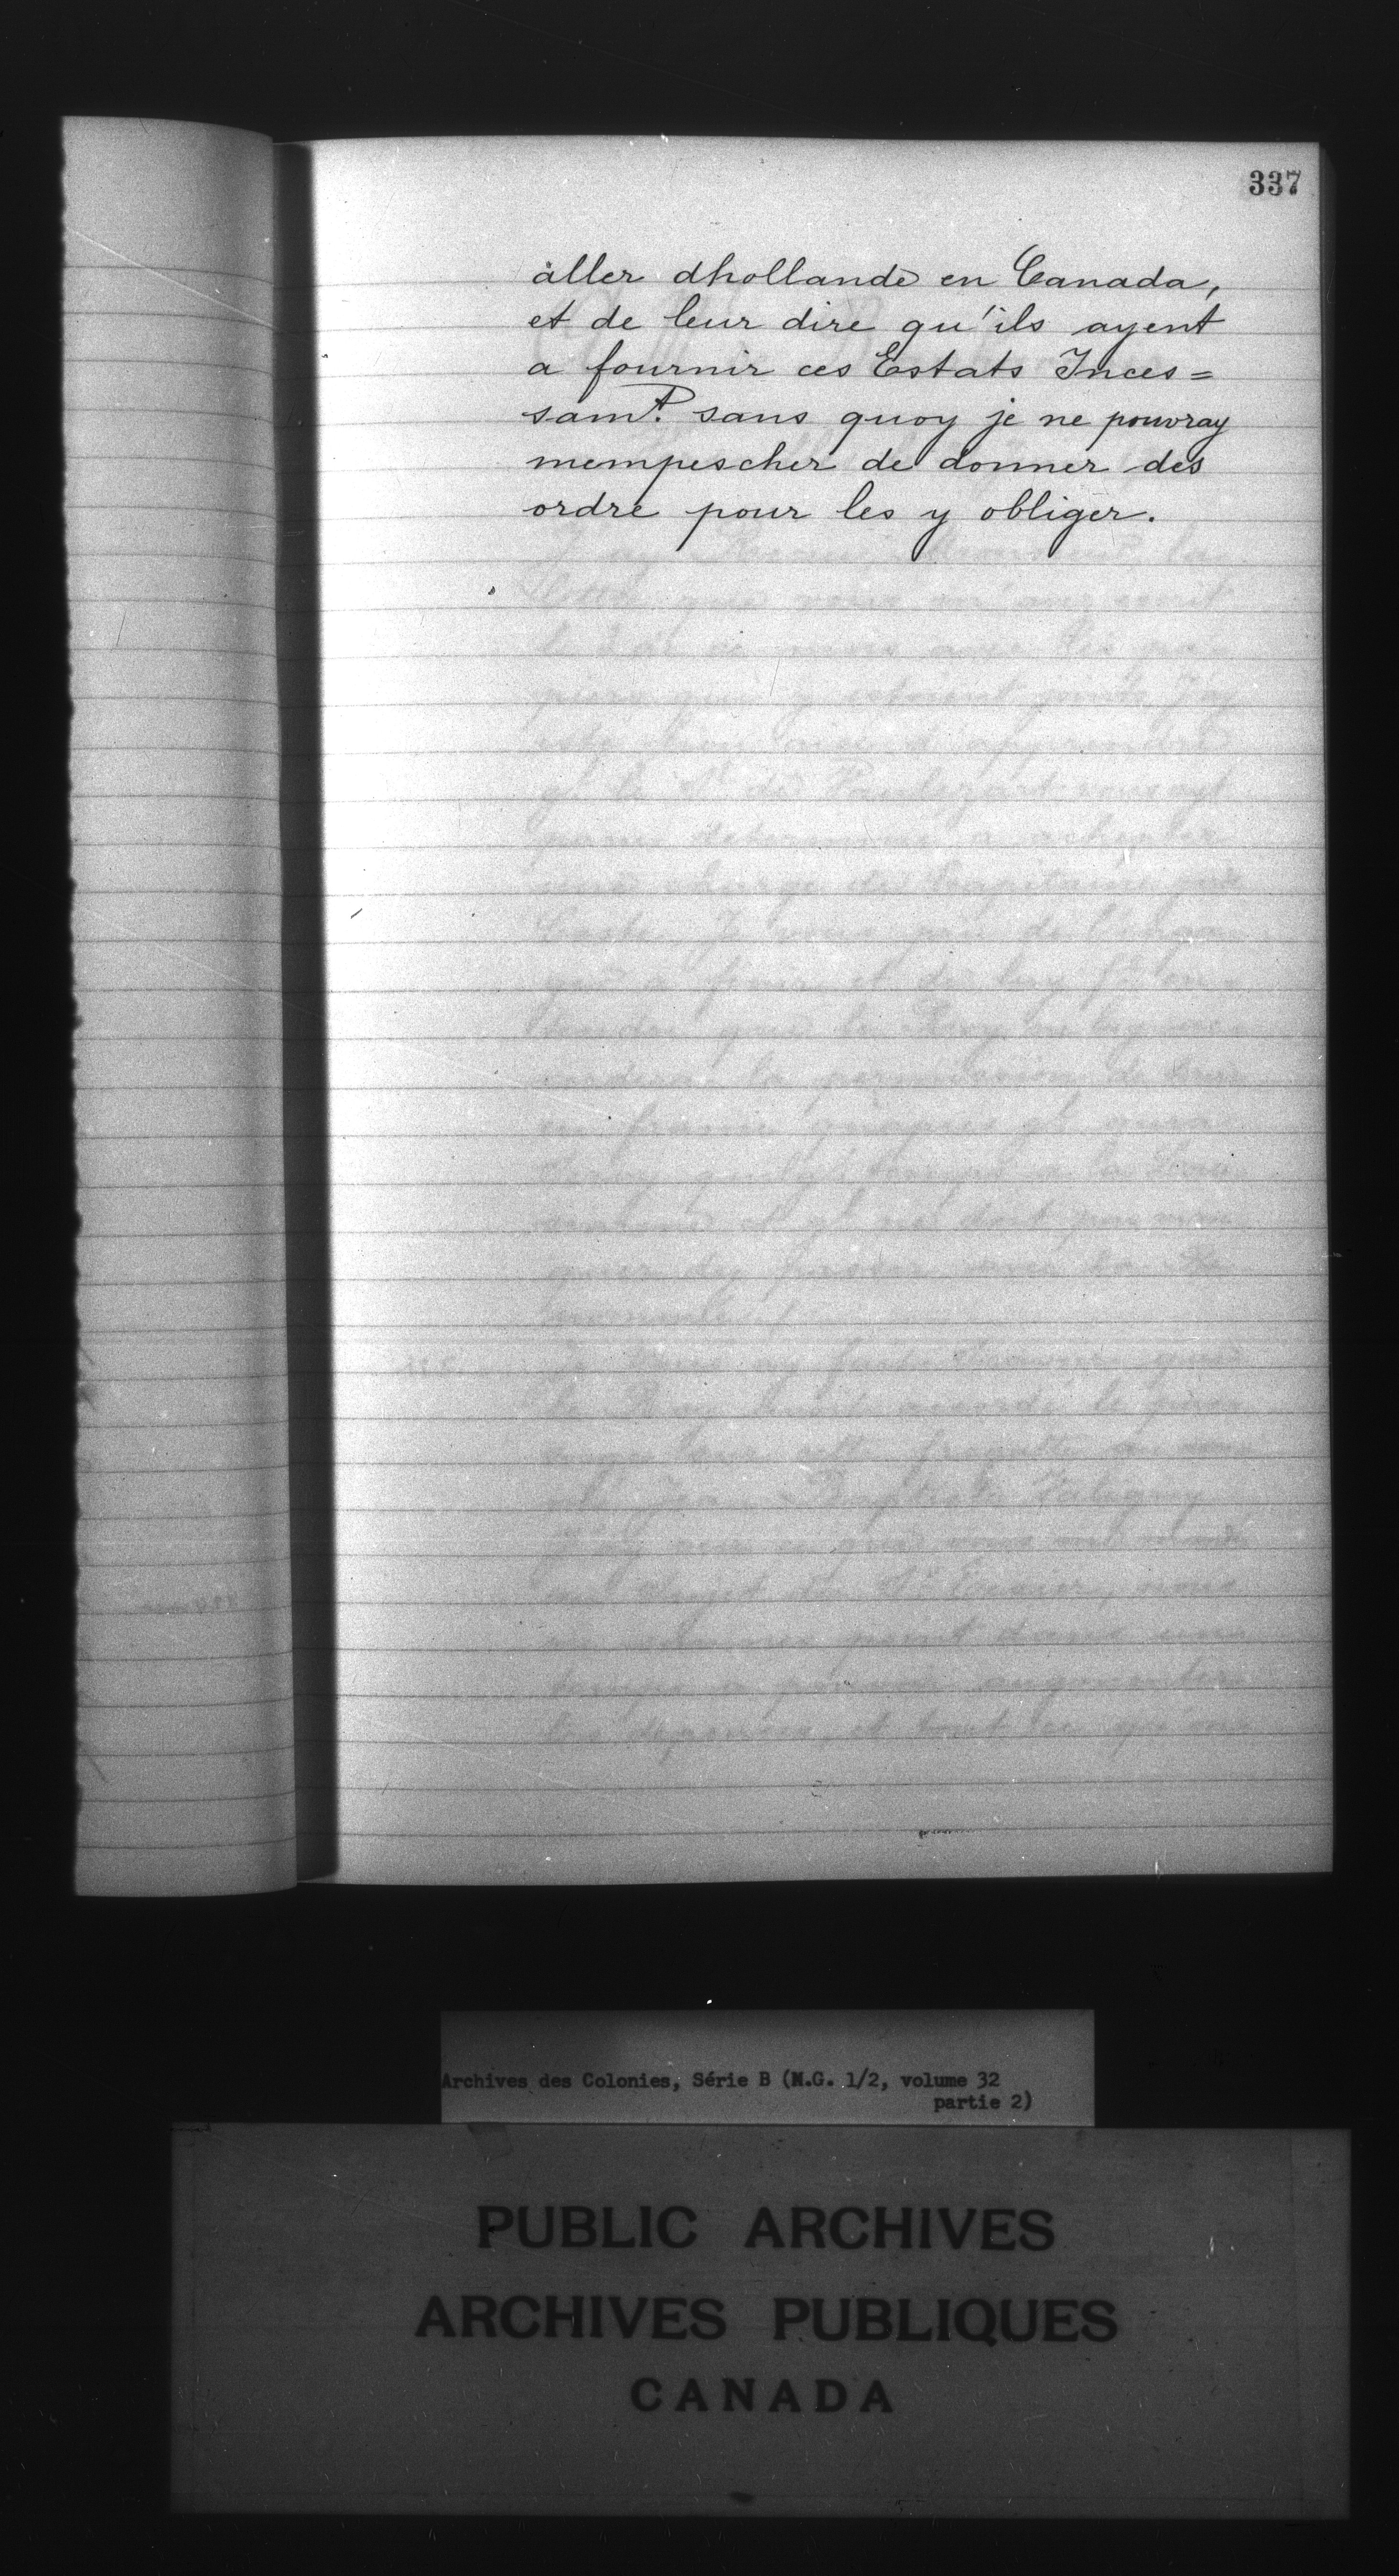 337
àller dhollande en Canada,
et de leur dire qu'ils ayent
a fournir ces Estats Inces=
samt. sans quoy je ne pouvray
mempescher de donner des
ordre pour les y obliger.
Archives des Colonies, Série B (M.G. 1/2, volume 32
partie 2)
PUBLIC ARCHIVES
ARCHIVES PUBLIQUES
CANADA